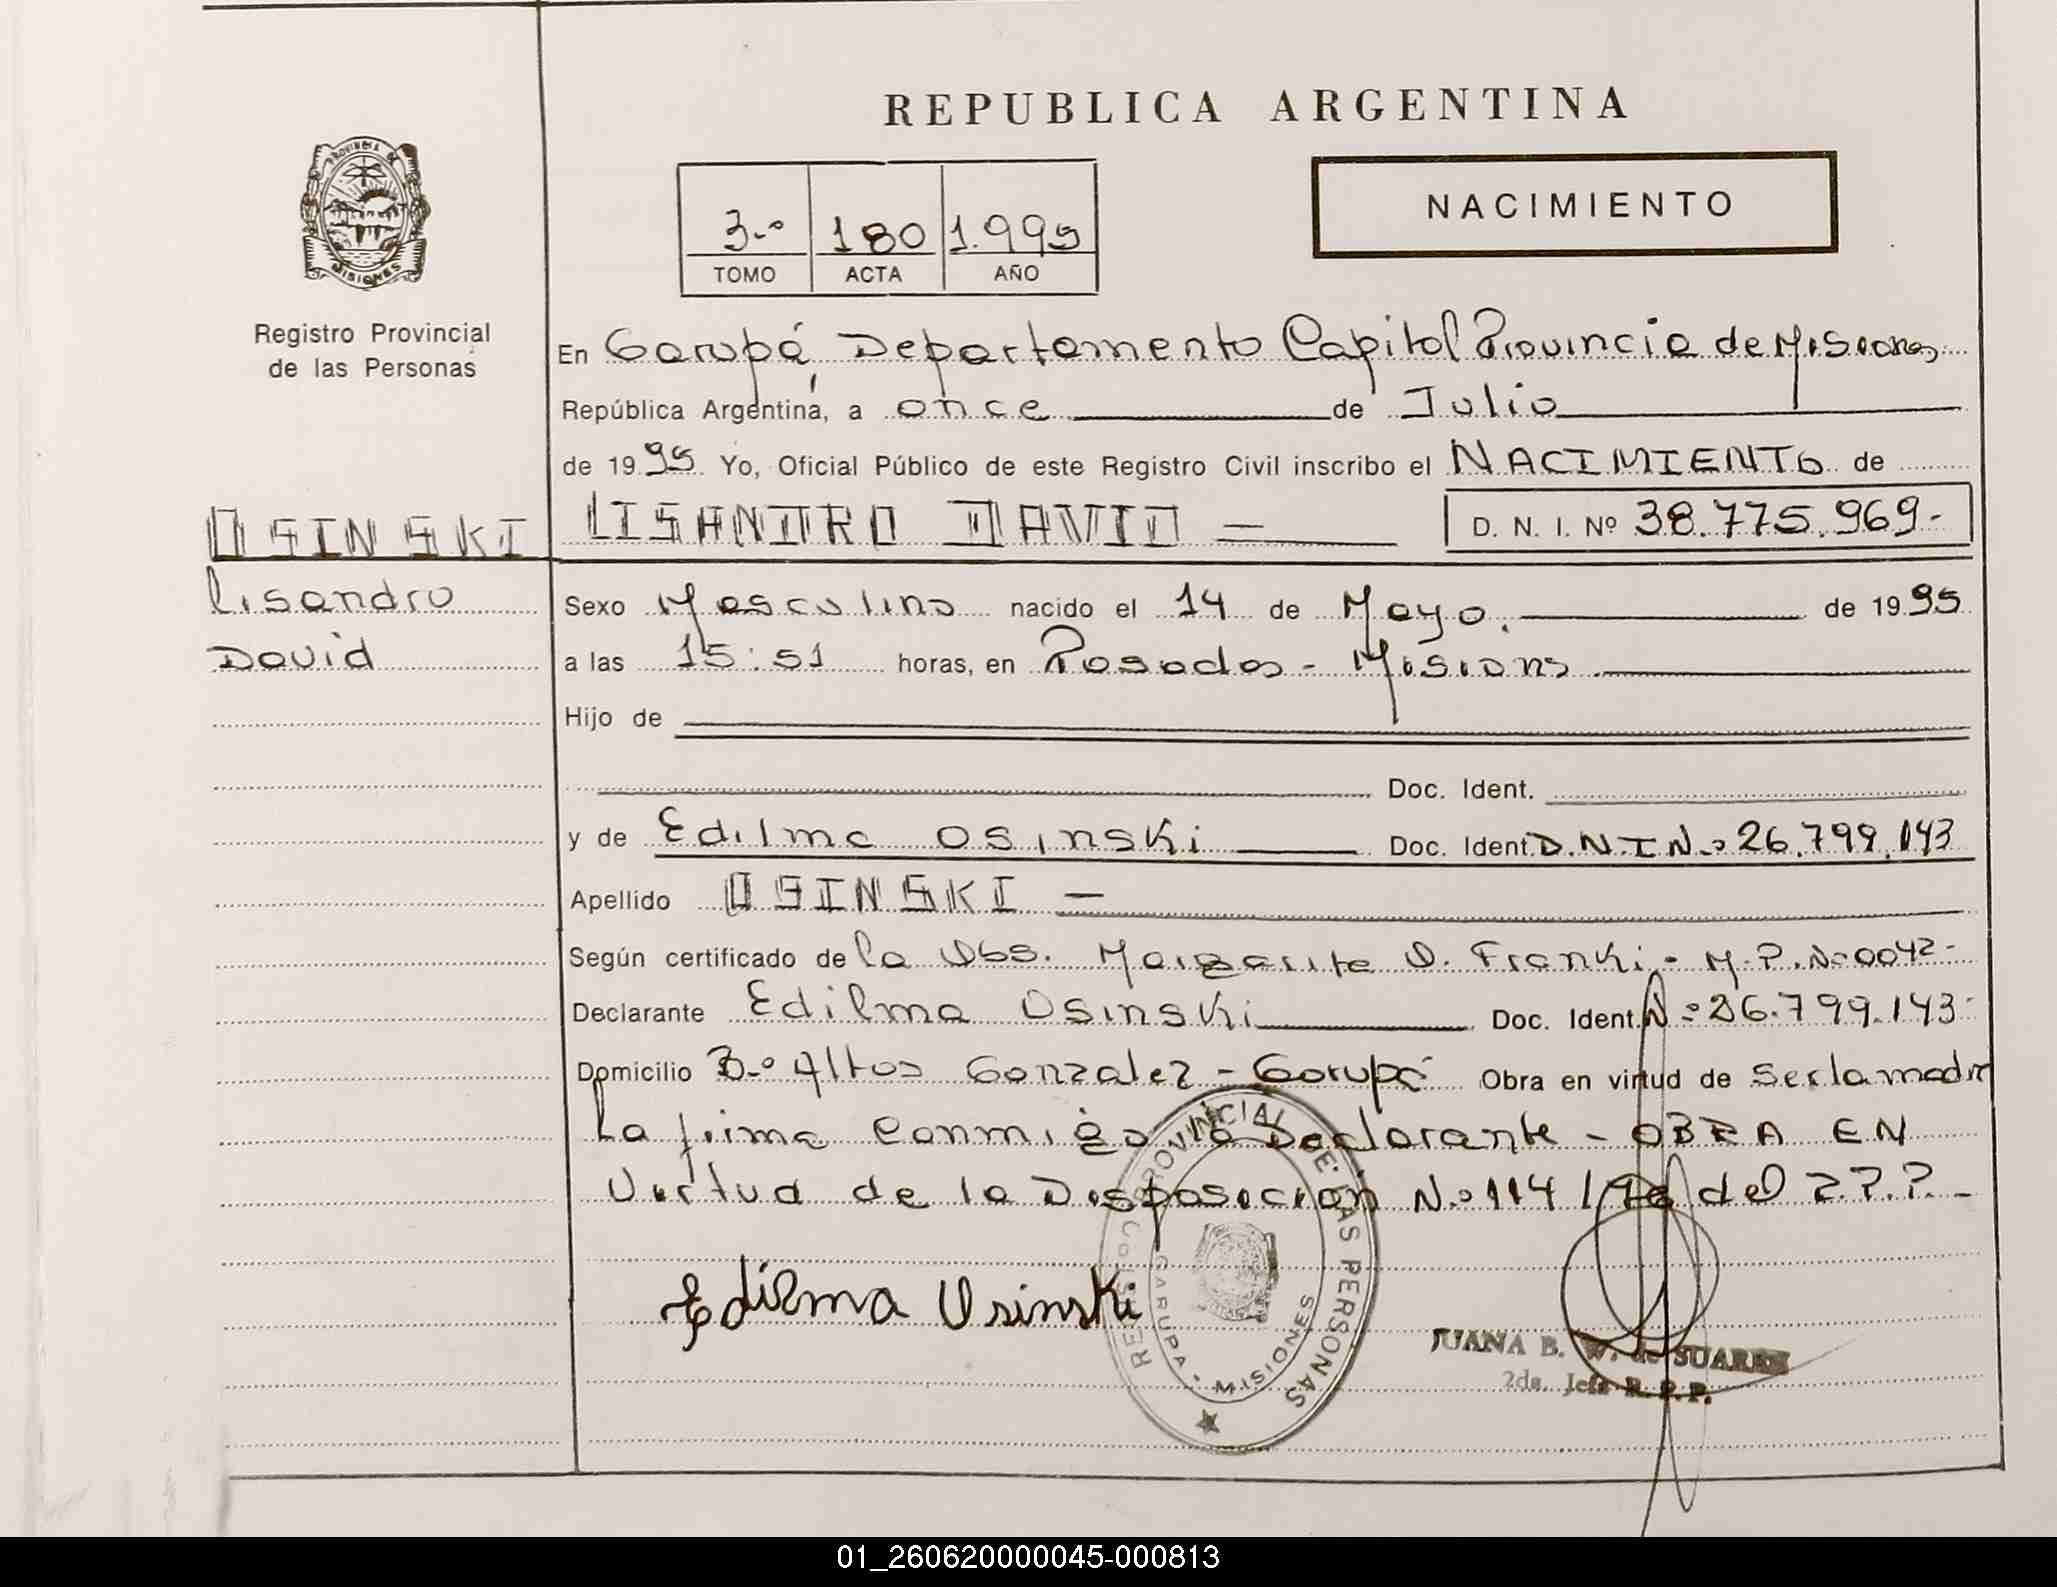 REPUBLICA ARGENTINA
PROVINCIA DE MISIONES
NACIMIENTO
3.º 180 1.995
TOMO ACTA AÑO
Registro Provincial
de las Personas
En Garupá, Departamento Capital Provincia de Misiones
República Argentina, a once de Julio
de 1995 Yo, Oficial Público de este Registro Civil inscribo el NACIMIENTO de
OSINSKI LISANDRO DAVID — D. N. I. Nº 38.775.969-
Lisandro
David
Sexo Masculino nacido el 14 de Mayo. de 1995
a las 15:51 horas, en Posadas - Misions
Hijo de
Doc. Ident.
y de Edilma Osinski Doc. Ident. D.N.I Nº 26.799.143
Apellido OSINSKI —
Según certificado de la Obs. Margarita O. Franki - M.P.Nº 0042-
Declarante Edilma Osinski Doc. Ident. Nº 26.799.143-
Domicilio Bº Altos Gonzalez - Garupá Obra en virtud de ser la madre
La firma conmigo la Declarante - OBRA EN
Virtud de la Disposición Nº 114/ del R.P.P. -
Edilma Osinski
REGISTRO PROVINCIAL DE LAS PERSONAS
GARUPA - MISIONES
JUANA B. W. de SUAREZ
2da. Jefe R.P.P.
01_260620000045-000813